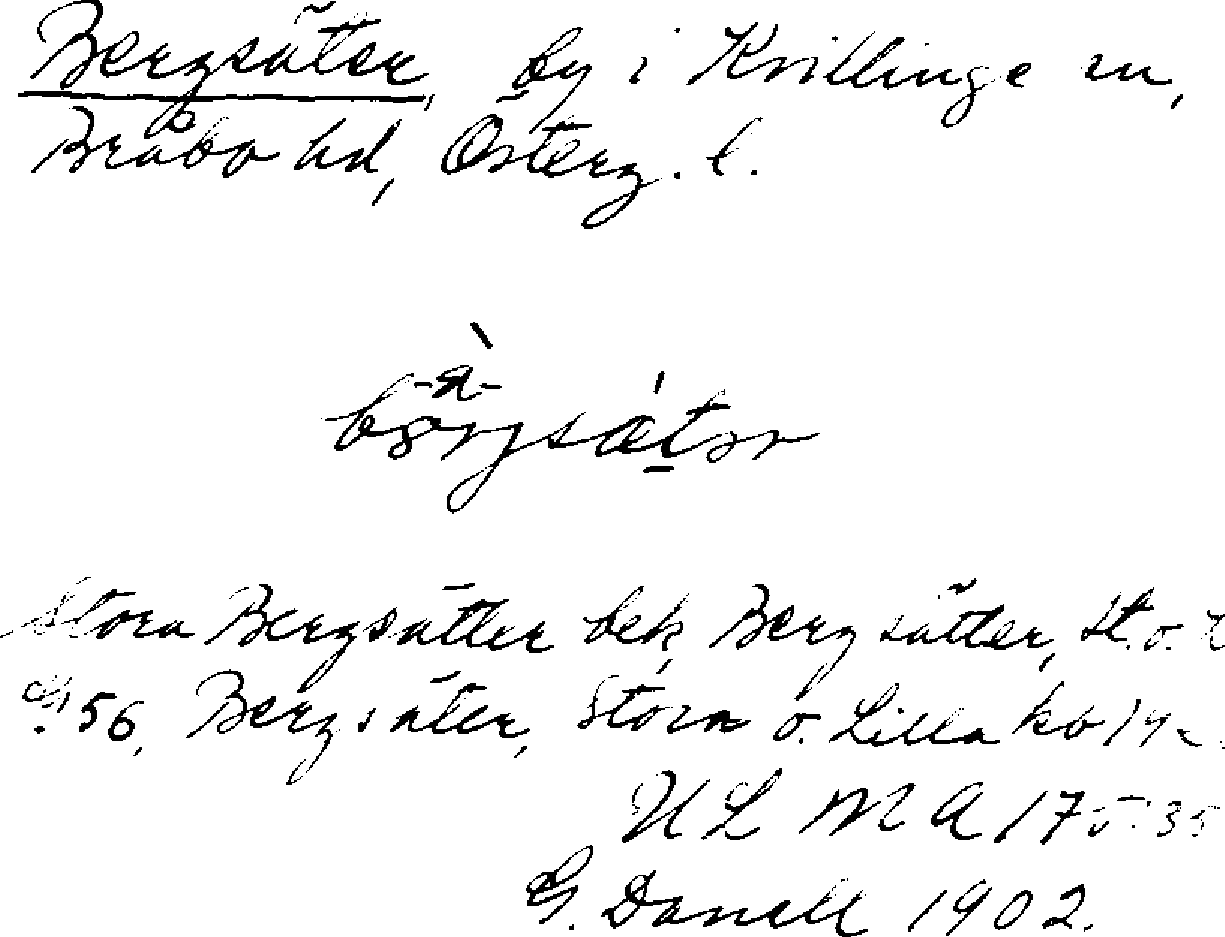 Bergsäter, by i Kvillinge sn,
Bråbo hd, Österg. l.
-a-
bærjsætər
Stora Bergsätter bek, Bergsätter, St. o.
GS 56, Bergsäter, Stora o. Lilla kb
ULMA 175:35
G. Danell 1902.